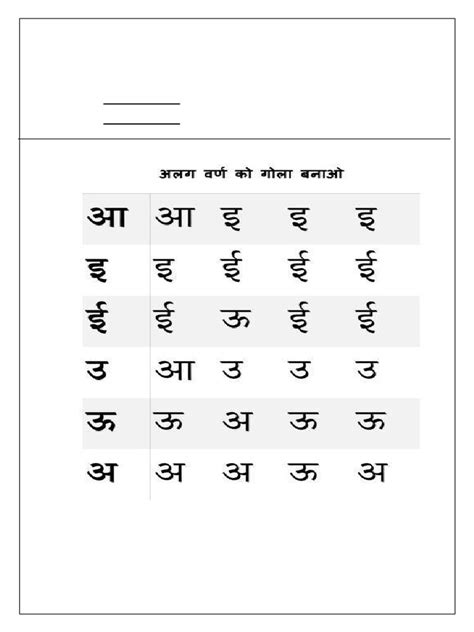 अलग वर्ण को गोला बनाओ
आ आ इ इ इ
इ इ ई ई ई
ई ई ऊ ई ई
उ आ उ उ उ
ऊ ऊ अ ऊ ऊ
अ अ अ ऊ अ